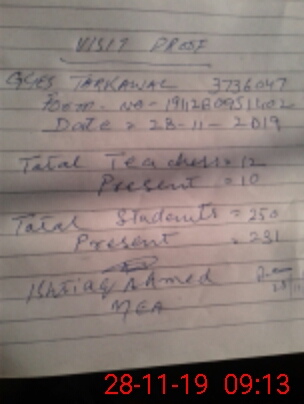 VISIT PROOF
GGES TARKAWAL 3736047
Form - No - 19112809S1402
Date = 28-11-2019
Total Teachers = 12
Present = 10
Total Students = 250
Present = 231
Ishtiaq Ahmed
MEA
28-11-19 09:13